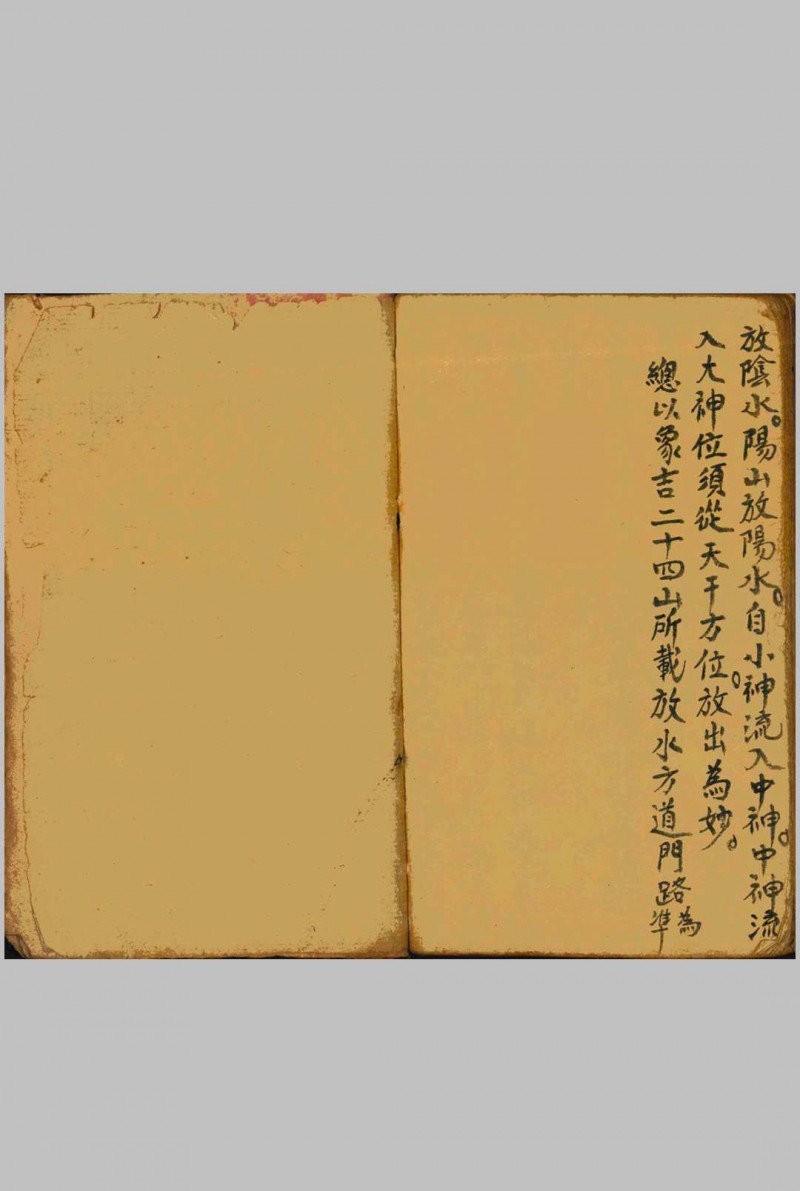 放陰水。陽山放陽水。自小神流入中神。中神流
入大神位須從天干方位。放出為妙。
總以象吉二十四山所載放水方道門路為準